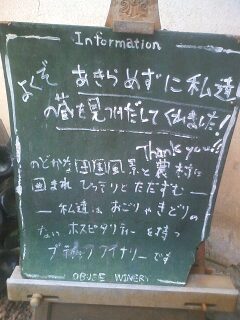 Information
よくぞ あきらめずに私達
の蔵を見つけだしてくれました!
Thank you!!
のどかな田園風景と農村に
囲まれ ひっそりとたたずむ
私達は おごりやきどりの
ない ホスピタリティーを持つ
ブティックワイナリーです
OBUSE WINERY